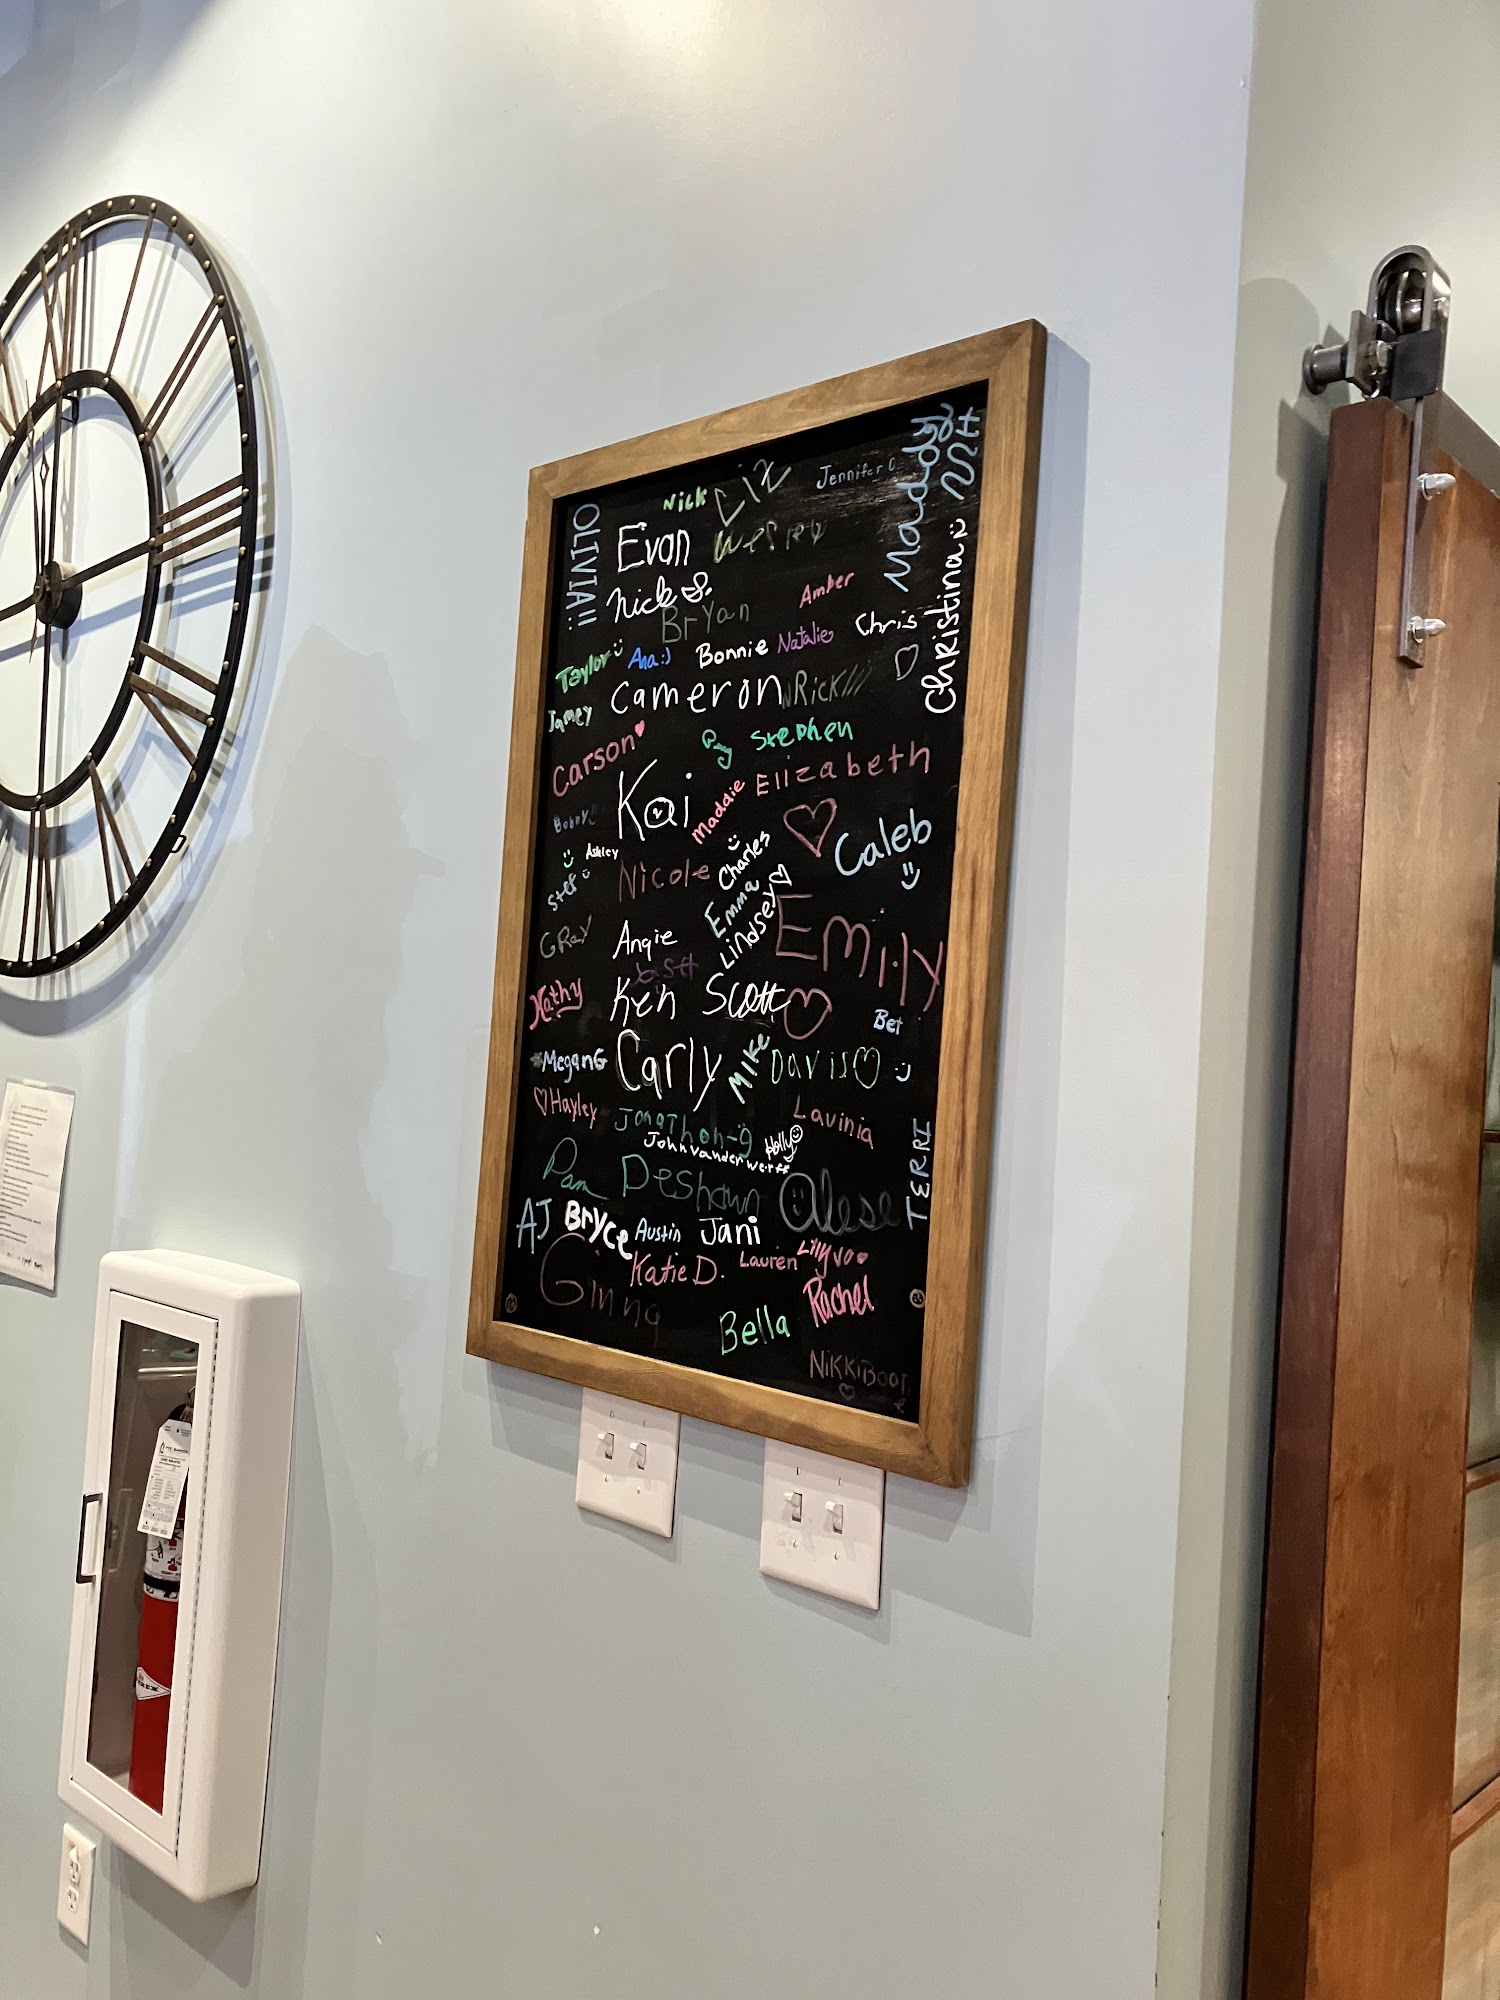 OLIVIA!!
Nick
Liz
Jennifer C
Maddy
Evan
Wesley
Nick S.
BrYan
Amber
Christina
Taylor
Ana:)
Bonnie
Natalie
Chris
Jamey
Cameron
RICK
Carson
Stephen
Elizabeth
Kai
Maddie
Bobby
Caleb
Ashley
Stef
Nicole
Charles
Emma
Lindsey
GRaY
Angie
EMilY
Kathy
Ken
Scott
Bet
MeganG
Carly
MIKe
DAVIS
Hayley
JonaThon-g
Lavinia
Holly
John Vanderwerff
TERRI
Pam
Deshawn
AJ
Bryce
Austin
Jani
Ginna
Katie D.
Lauren
Rachel
Bella